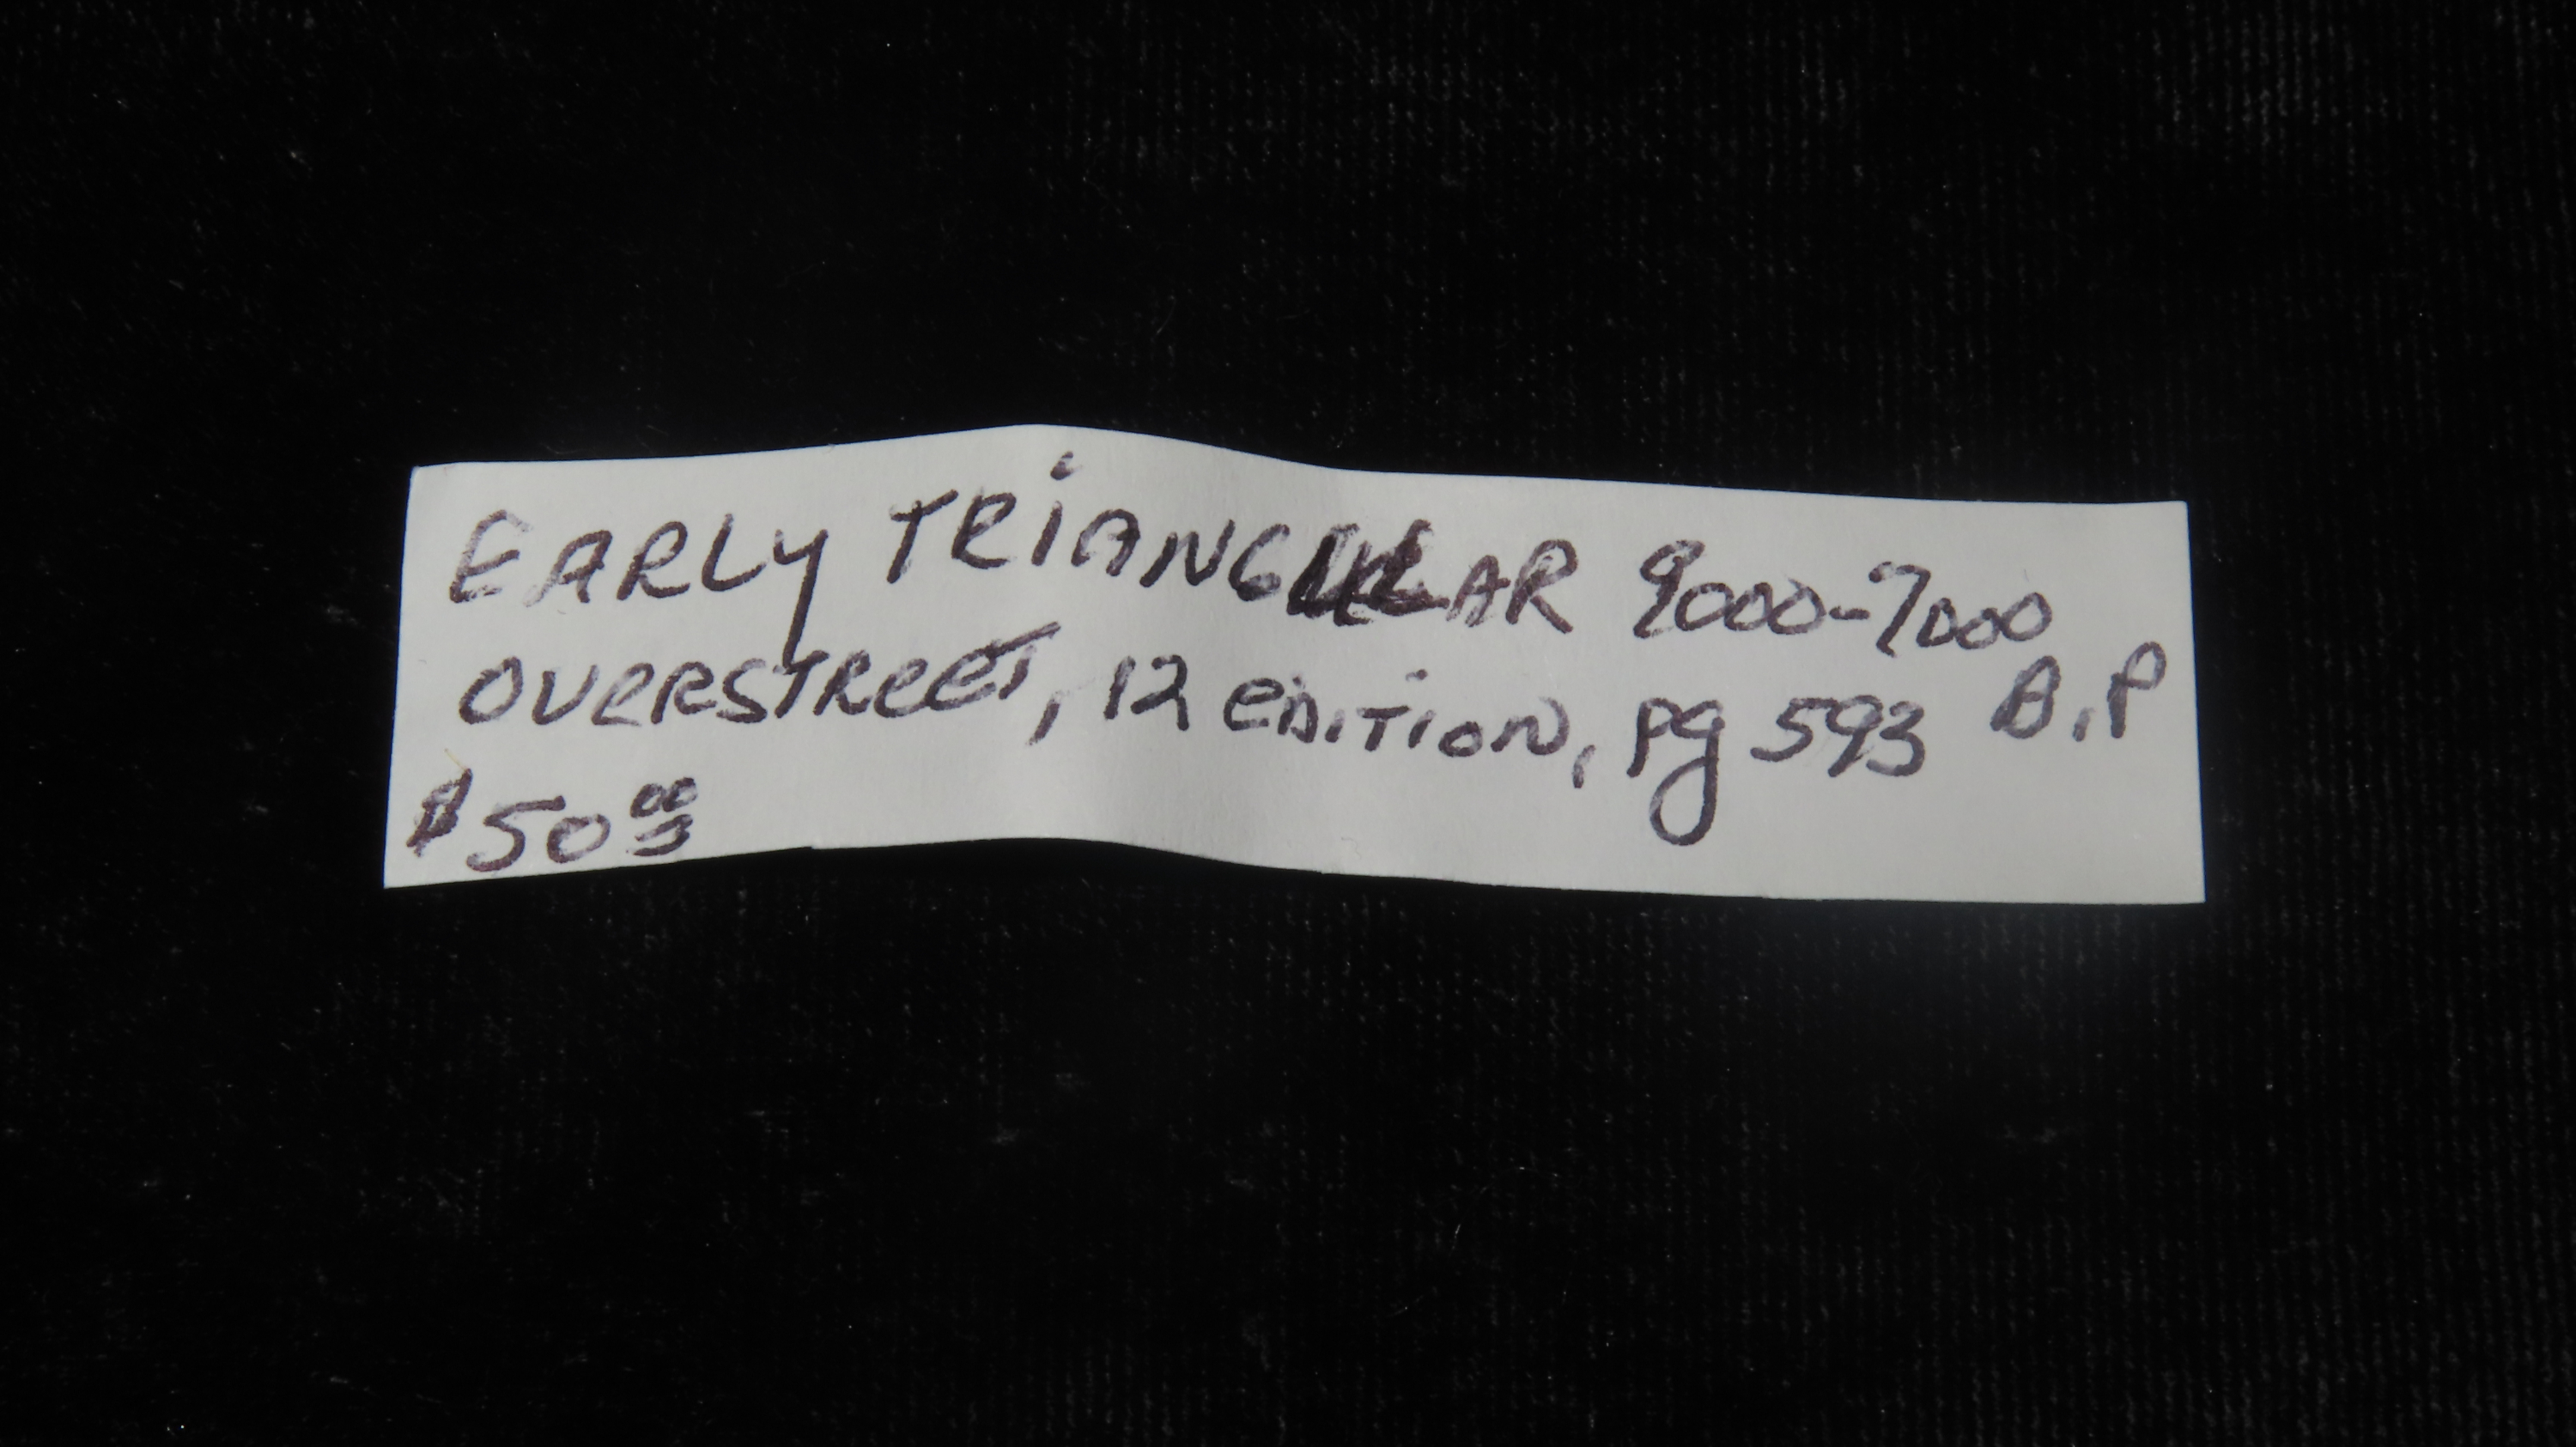 EARLY TRIANGULAR 9000-7000 B.P
OVERSTREET, 12 EDITION, pg 593
$50.00